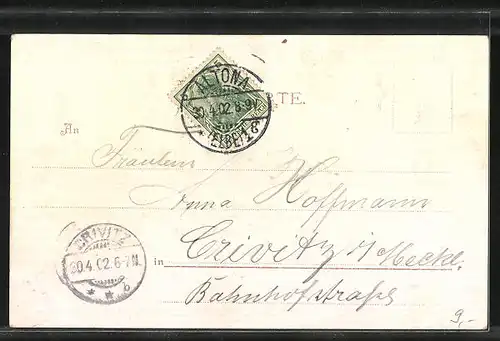 ALTONA
4.02.8-9V
* (ELBE) 1 e
ARTE.
An
Fräulein
Anna Hoffmann
CRIVITZ
20.4.02.6-7N.
* * b
in Crivitz i/ Meckl.
Bahnhofstraße
9,-